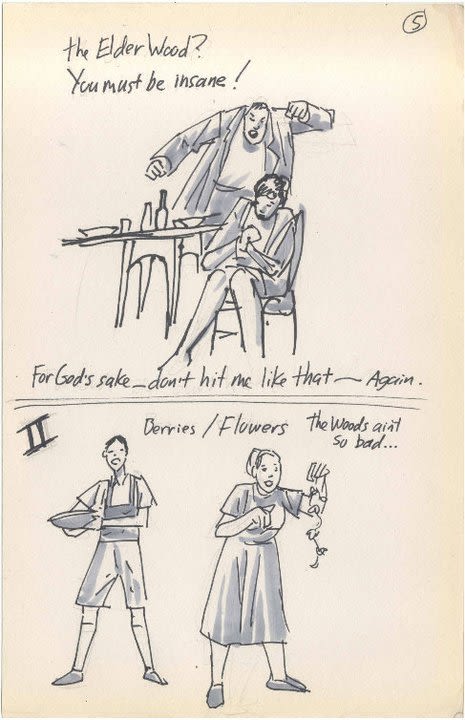 5
the Elder Wood?
You must be insane!
For God's sake — don't hit me like that — Again.
II
Berries / Flowers
The Woods aint
so bad...